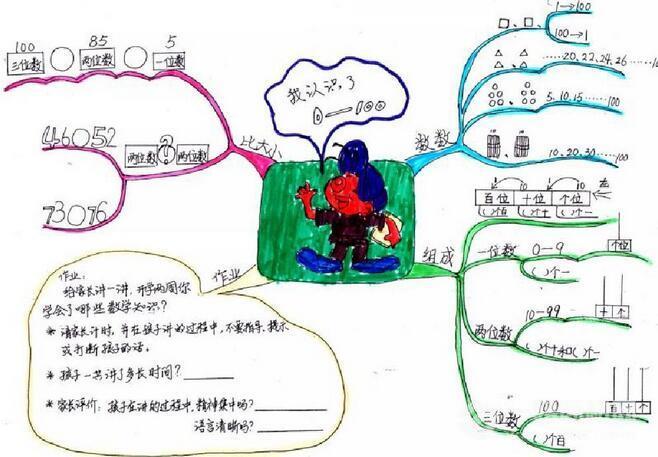 我认识了
0——100
比大小
100 85 5
三位数 ○ 两位数 ○ 一位数
46○52
两位数 ? 两位数
73○76
数数
□、□、
1→100
100→1
……20、22、24、26……100
5、10、15……100
10、20、30……100
组成
10 10
百位 十位 个位 ←左
( )个百 ( )个十 ( )个一
一位数
0—9
( )个一
个位
两位数
10—99
( )个十和( )个一
十 个
三位数
100
( )个百
百 十 个
作业
作业：
给家长讲一讲，开学两周你
学会了哪些数学知识？
* 请家长计时，并在孩子讲的过程中，不要指导、提示
或打断孩子的话。
* 孩子一共讲了多长时间？
* 家长评价：孩子在讲的过程中，精神集中吗？
语言清晰吗？